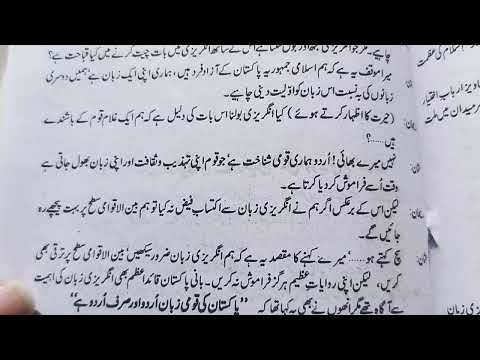 چاہیے۔ مگر جو انگریزی سمجھ اور بول سکتا ہے اس کے ساتھ انگریزی میں بات چیت کرنے میں کیا قباحت ہے؟
میرا موقف یہ ہے کہ ہم اسلامی جمہوریہ پاکستان کے آزاد فرد ہیں، ہماری اپنی ایک زبان ہے ہمیں دوسری
زبانوں کی بہ نسبت اس زبان کو اوّلیت دینی چاہیے۔
(حیرت کا اظہار کرتے ہوئے) کیا انگریزی بولنا اس بات کی دلیل ہے کہ ہم ایک غلام قوم کے باشندے
ہیں......؟
نہیں میرے بھائی! اُردو ہماری قومی شناخت ہے، جو قوم اپنی تہذیب و ثقافت اور اپنی زبان بھول جاتی ہے
وقت اُسے فراموش کر دیا کرتا ہے۔
لیکن اس کے برعکس اگر ہم نے انگریزی زبان سے اکتساب فیض نہ کیا تو ہم بین الاقوامی سطح پر بہت پیچھے رہ
جائیں گے۔
سچ کہتے ہو......، میرے کہنے کا مقصد یہ ہے کہ ہم انگریزی زبان ضرور سیکھیں، بین الاقوامی سطح پر ترقی بھی
کریں، لیکن اپنی روایاتِ عظیم ہرگز فراموش نہ کریں۔ بانیِ پاکستان قائداعظم بھی انگریزی زبان کی اہمیت
سے آگاہ تھے مگر انھوں نے بھی یہ کہا تھا کہ "پاکستان کی قومی زبان اُردو اور صرف اُردو ہے"
اسلام کی عظمت
ارباب اختیار
میدان میں ملت
انگریزی زبان